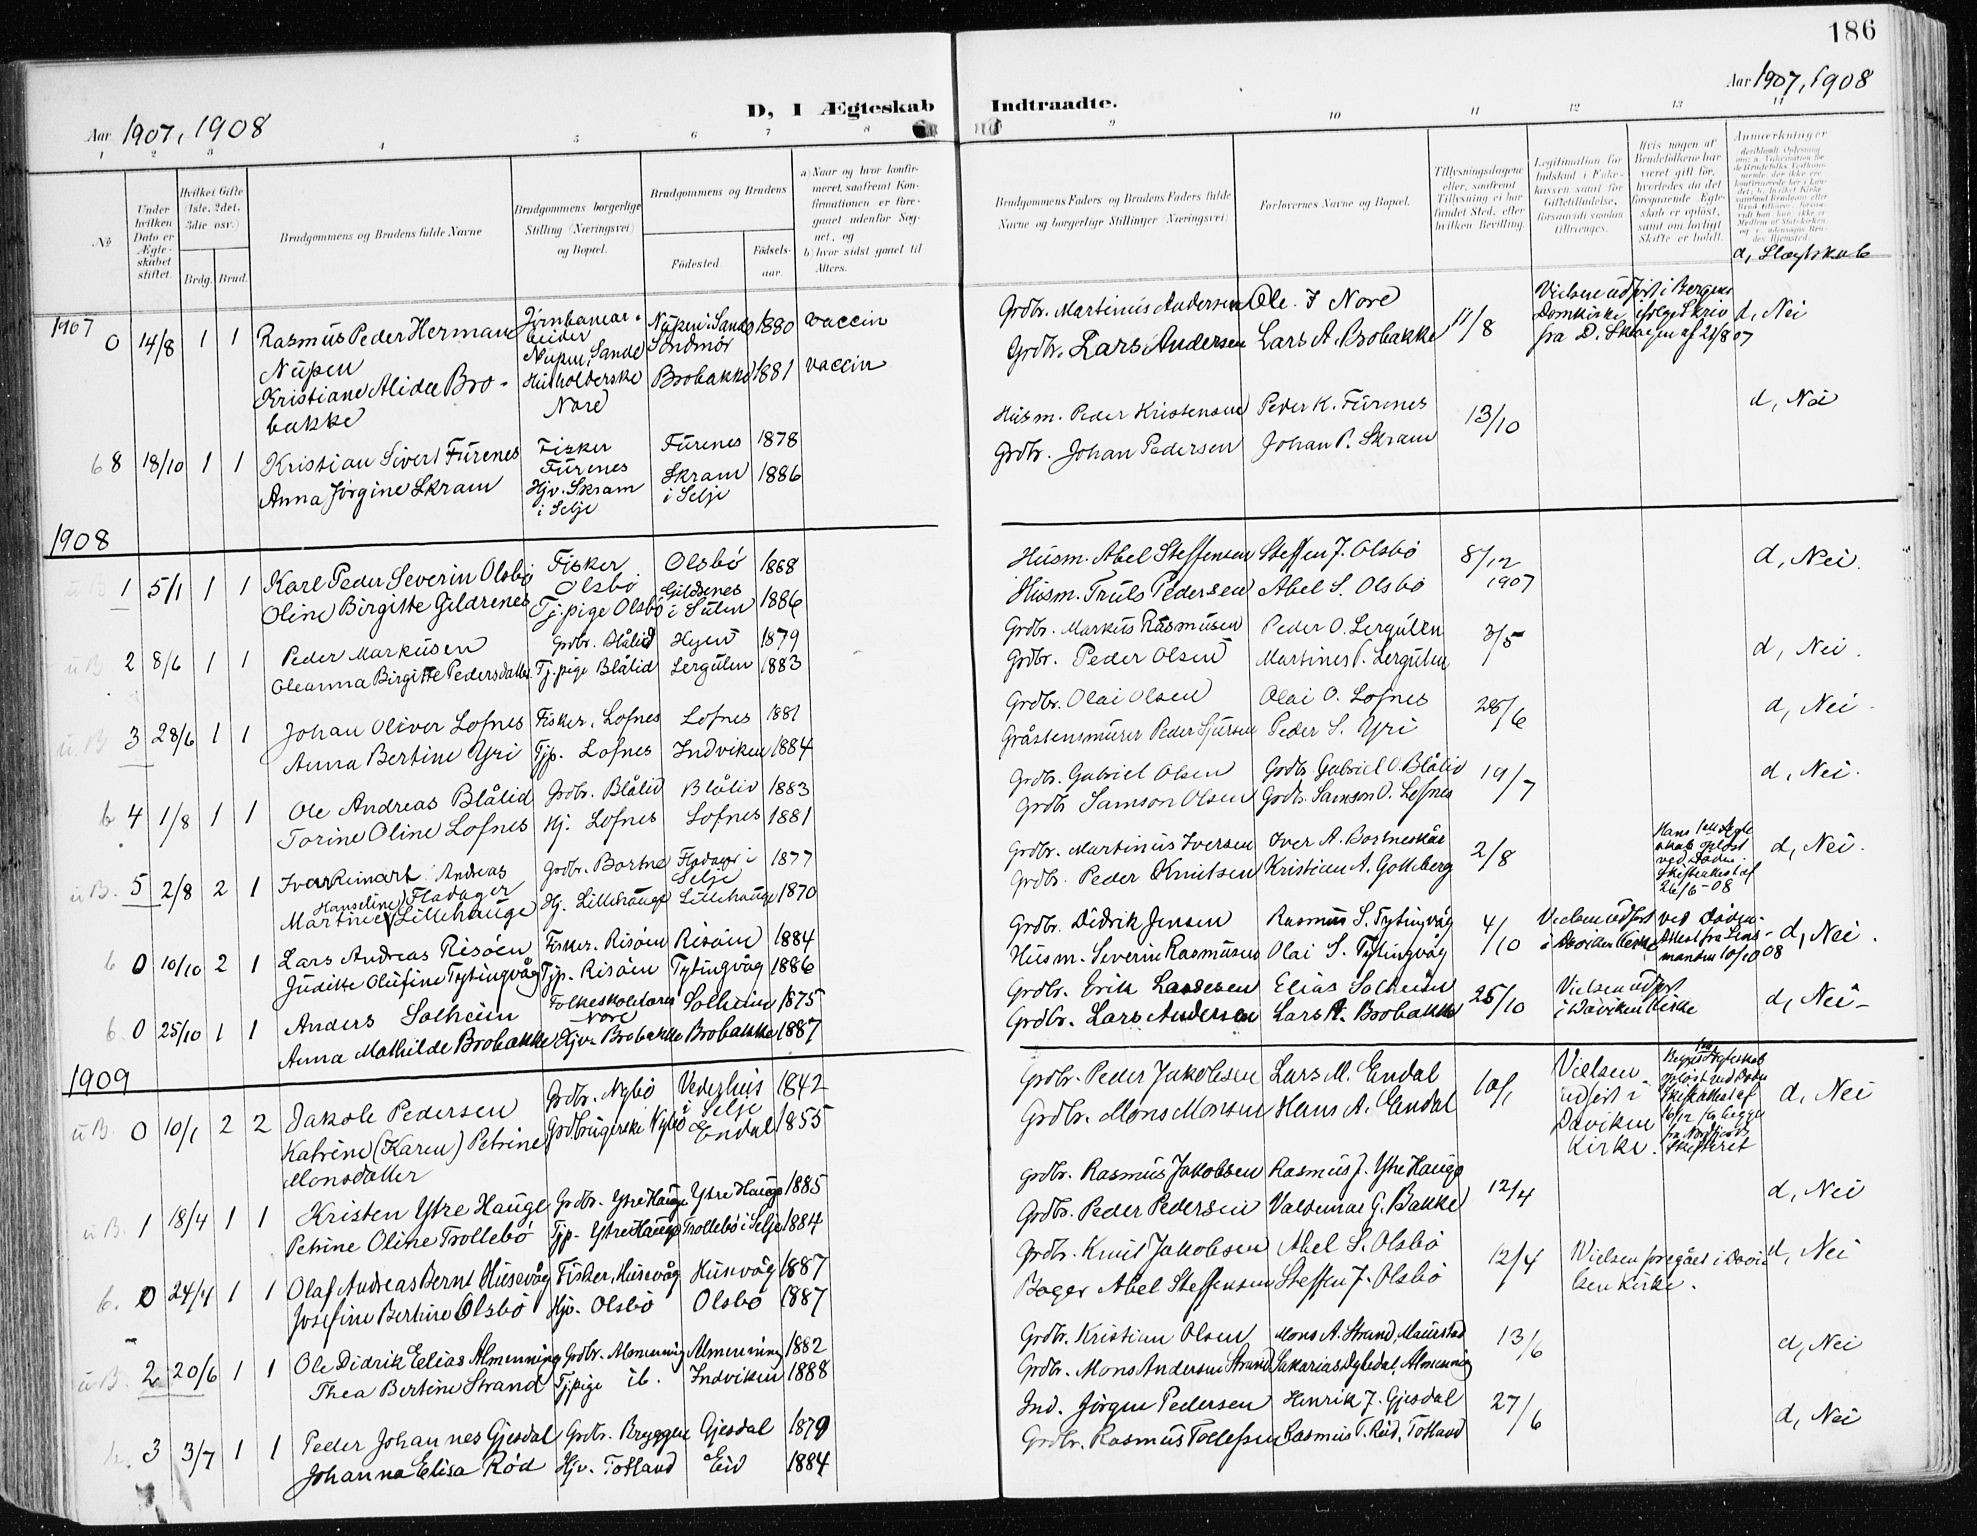 186
Aar 1907, 1908
D, I Ægteskab
Aar 1907, 1908
Indtraadte.
1 2 3 4 5 6 7 8
9 10 11 12 13 14
No
Under hvilken Dato er Ægteskabet stiftet.
Hvilket Gifte (1ste, 2det, 3die osv.)
Brdg. Brud.
Brudgommens og Brudens fulde Navne
Brudgommens borgerlige Stilling (Næringsvei) og Bopæl.
Brudgommens og Brudens
Födested.
Födselsaar.
a) Naar og hvor konfirmeret, saafremt Konfirmationen er foregaaet udenfor Sognet, og
b) hvor sidst gaaet til Alters.
Brudgommens Faders og Brudens Faders fulde Navne og borgerlige Stillinger (Næringsvei)
Forlovernes Navne og Bopæl.
Tillysningsdagene eller, saafremt Tillysning ei har fundet Sted, efter hvilken Bevilling.
Hvis nogen af Brudefolkene har været gift før, hvorledes da det foregaaende Ægteskab er opløst, samt om lovligt Skifte er holdt.
Anmærkninger
d, Slægtskab
1907
0 14/8 1 1 Rasmus Peder Herman Nupen
Jernbanearbeider Nupen, Sande
Nupen i Sande Søndmør 1880 vaccin
Kristiane Alida Brobakke
Husholderske Nore
Brobakke 1881 vaccin
Grdbr. Martinus Andersen Ole. J Nore
Grdbr. Lars Andersen Lars A. Brobakke
11/8
Vielsen udført i Bergens Domkirke ifølge Skriv fra D. Skaagen af 21/8 07
d, Nei
6 8 18/10 1 1 Kristian Sivert Furenes
Fisker Furenes
Furenes 1878
Anna Jørgine Skram
Hjv. Skram i Selje
Skram i Selje 1886
Husm. Peder Kristensen Peder K. Furenes
Grdbr. Johan Pedersen Johan P. Skram
13/10
d, Nei
1908
u B 1 5/1 1 1 Karl Peder Severin Olsbø Fisker Olsbø Olsbø 1868
Oline Birgitte Gildrenes Tj.pige Olsbø Gildrenes i Sulen 1886
Husm. Abel Steffensen Steffen J. Olsbø
Husm. Truls Pedersen Abel S. Olsbø
8/12 1907
d, Nei.
u B 2 8/6 1 1 Peder Markusen Grdbr. Blålid Hyen 1879
Oleanna Birgitte Pedersdatter Tj.pige Blålid Lergulen 1883
Grdbr. Markus Rasmusen Peder O. Lergulen
Grdbr. Peder Olsen Martines P. Lergulen
3/5
d, Nei.
u. B 3 28/6 1 1 Johan Oliver Lofnes Fisker, Lofnes Lofnes 1881
Anna Bertine Yri Tjp. Lofnes Indviken 1884
Grdbr. Olai Olsen Olai O. Lofnes
Gråstensmurer Peder Sjursen Peder S. Yri
28/6
d, Nei.
b 4 1/8 1 1 Ole Andreas Blålid Grdbr. Blålid Blålid 1883
Torine Oline Lofnes Hj. Lofnes Lofnes 1881
Grdbr. Gabriel Olsen Grdbr. Gabriel O. Blålid
Grdbr Samson Olsen Grdbr. Samson O. Lofnes
19/7
d, Nei.
u B. 5 2/8 2 1 Ivar Reinart Andreas Fladager
Grdbr. Bortne Fladager i Selje 1877
Martine (Hanseline) Lillehauge Hj. Lillehauge Lillehauge 1870
Grdbr. Martinus Iversen Iver A. Bortneskår
Grdbr. Peder Knutsen Kristian A. Gotteberg
2/8
Hans 1ste Ægteskab opløst ved Døden. Skifteattest af 26/6-08
d, Nei.
b 0 10/10 2 1 Lars Andreas Risöen Fisker. Risöen Risöen 1884
Juditte Olufine Tytingvåg Tjp. Risöen Tytingvåg 1886
Grdbr. Didrik Jensen Rasmus S. Tytingvåg
Husm. Severin Rasmusen Olai S. Tytingvåg
4/10
Vielsen udført i Daviken Kirke
ved Døden. Attest fra Lensmanden 10/10 08
d, Nei.
b 0 25/10 1 1 Anders Solheim Folkeskolelærer Nore Solheim 1875
Anna Mathilde Brobakke Hjv. Brobakke Brobakke 1887
Grdbr. Erik Lassesen Elias Solheim
Grdbr. Lars Andersen Lars A. Brobakke
25/10
Vielsen udført i Daviken Kirke
d, Nei-
1909
u B. 0 10/1 2 2 Jakob Pedersen Grdbr. Nybø Vederhus i Selje 1842
Katrine (Karen) Petrine Monsdatter Grdbrugerske Nybø Endal 1855
Grdbr. Peder Jakobsen Lars M. Endal
Grdbr. Mons Monsen Hans A. Endal
10/1
Vielsen udført i Daviken Kirke.
Begges 1ste Ægteskab opløst ved Døden Skifteattest af 16/12 fra begge fra Nordfjords Skifteret
d, Nei
u B. 1 18/4 1 1 Kristen Ytre Hauge Grdbr. Ytre Hauge Ytre Hauge 1885
Petrine Oline Trollebö Tjp- Ytre Hauge Trollebö i Selje 1884
Grdbr. Rasmus Jakobsen Rasmus J. Ytre Hauge
Grdbr. Peder Pedersen Valdemar G. Bakke
12/4
d, Nei
b. 0 24/4 1 1 Olaf Andreas Bernt Husevåg Fisker, Husevåg Husevåg 1887
Josefine Bertine Olsbö Hjv. Olsbö Olsbö 1887
Grdbr. Knut Jakobsen Abel S. Olsbö
Bager Abel Steffensen Steffen J. Olsbö
12/4
Vielsen foregået i Daviken Kirke.
d, Nei
u B. 2 20/6 1 1 Ole Didrik Elias Almenning Grdbr. Almenning Almenning 1882
Thea Bertine Strand Tj.pige ib. Indviken 1888
Grdbr. Kristian Olsen Mons A. Strand, Maurstad
Grdbr. Mons Andersen Strand Sakarias Dybedal, Almenning
13/6
d, Nei
b. 3 3/7 1 1 Peder Johannes Gjesdal Grdbr. Bryggen Gjesdal 1879
Johanna Elisa Röd Hjv. Totland Eid 1884
Ind. Jörgen Pedersen Henrik J. Gjesdal
Grdbr. Rasmus Tollefsen Rasmus T. Röd, Totland
27/6
d, Nei